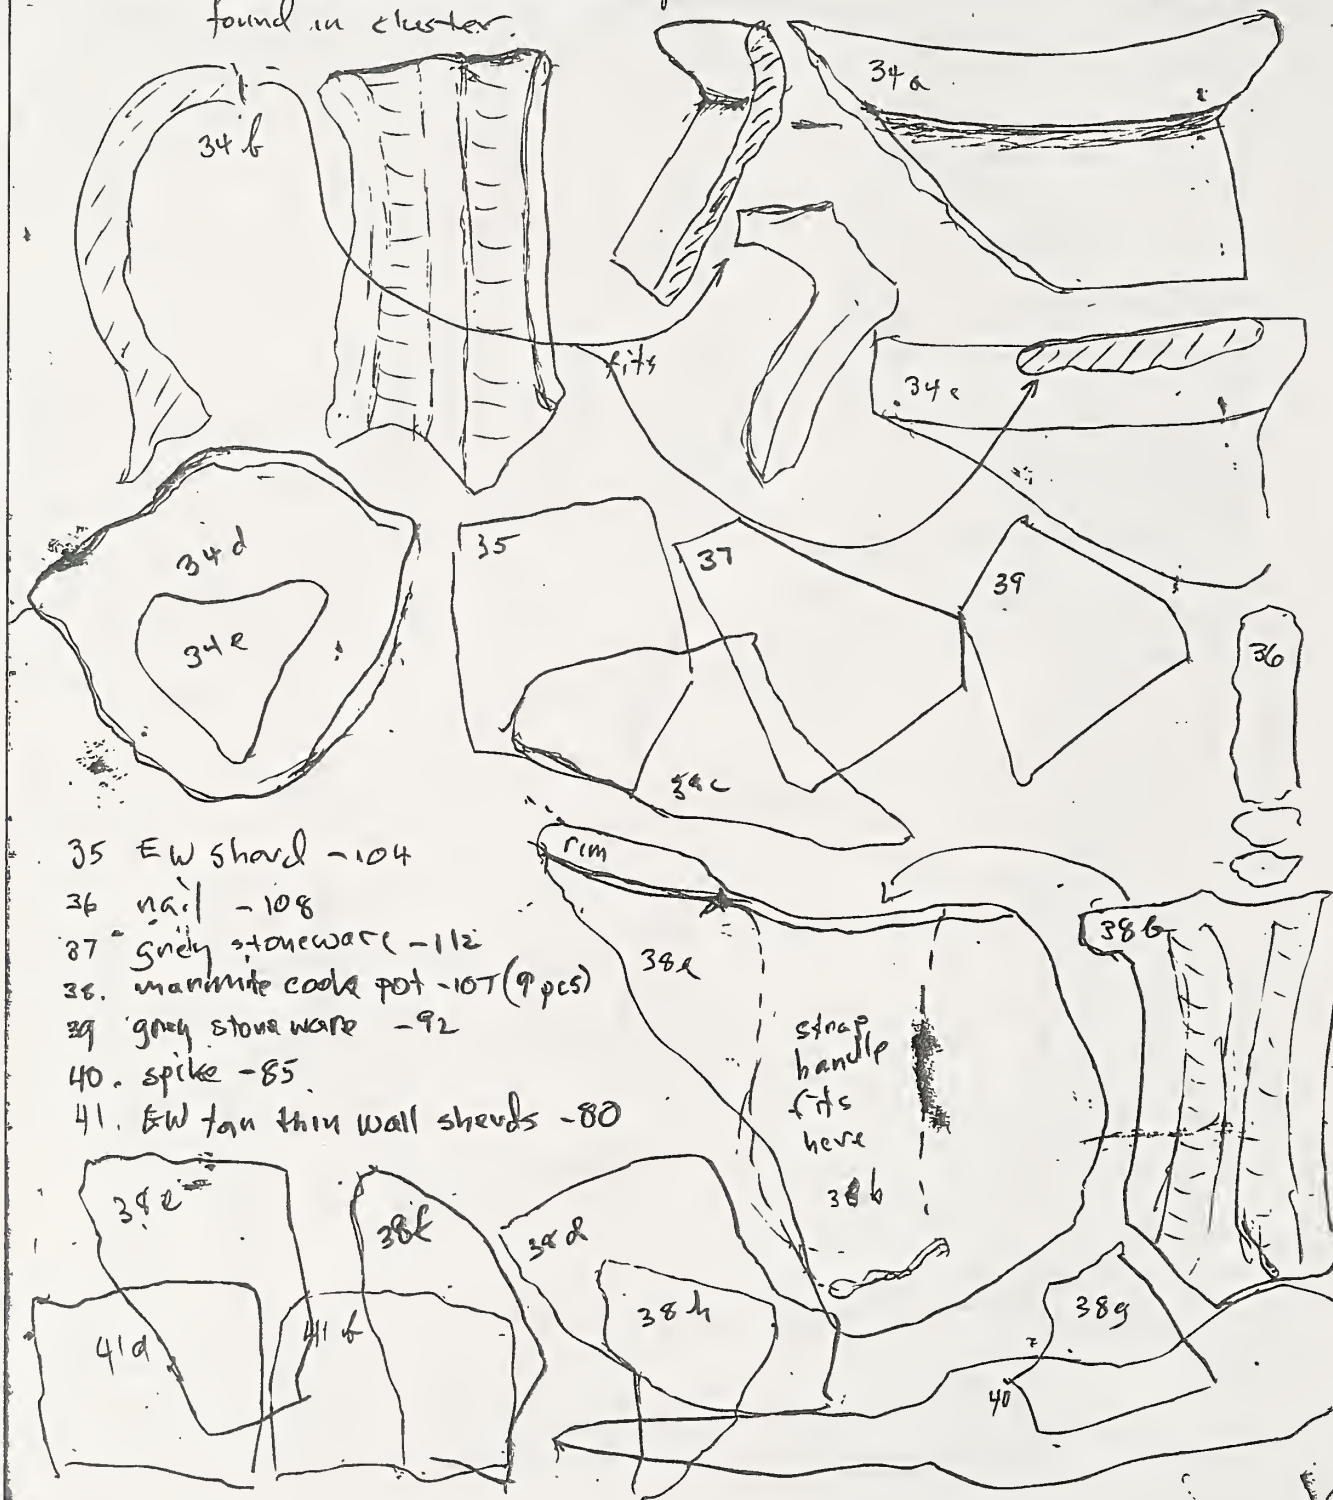 found in cluster.
34a
34b
fits
34c
34d
34e
35
37
39
36
38c
35 EW Sherd - 104
36 nail - 108
37 grey stoneware - 112
38. marmite cook pot - 107 (9 pcs)
39 grey stoneware - 92
40. spike - 85
41. EW tan thin wall sherds - 80
rim
38a
38b
strap
handle
fits
here
38b
38e
38f
38d
38h
38g
41a
41b
40